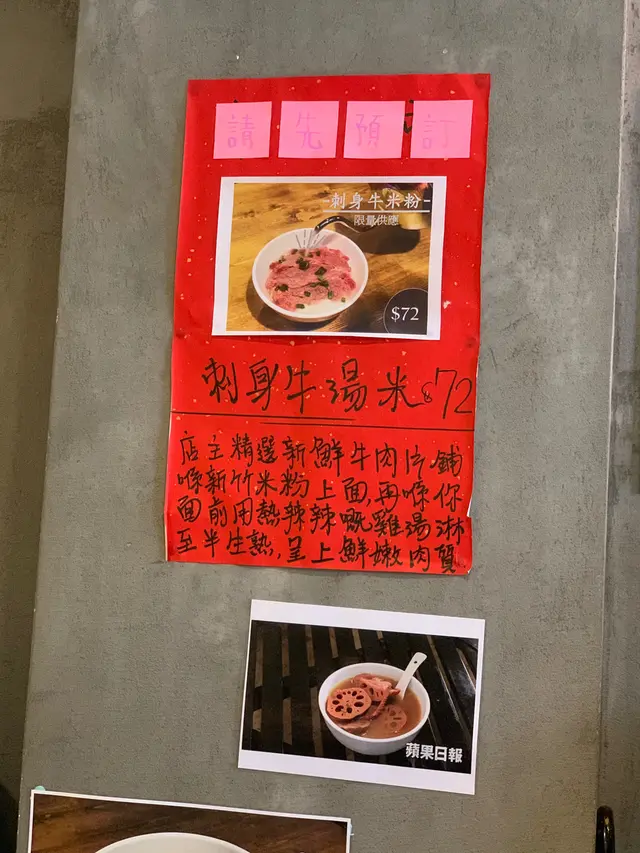 請先預訂
-刺身牛米粉-
限量供應
$72
刺身牛湯米$72
店主精選新鮮牛肉片鋪
喺新竹米粉上面,再喺你
面前用熱辣辣嘅雞湯淋
至半生熟,呈上鮮嫩肉質
蘋果日報